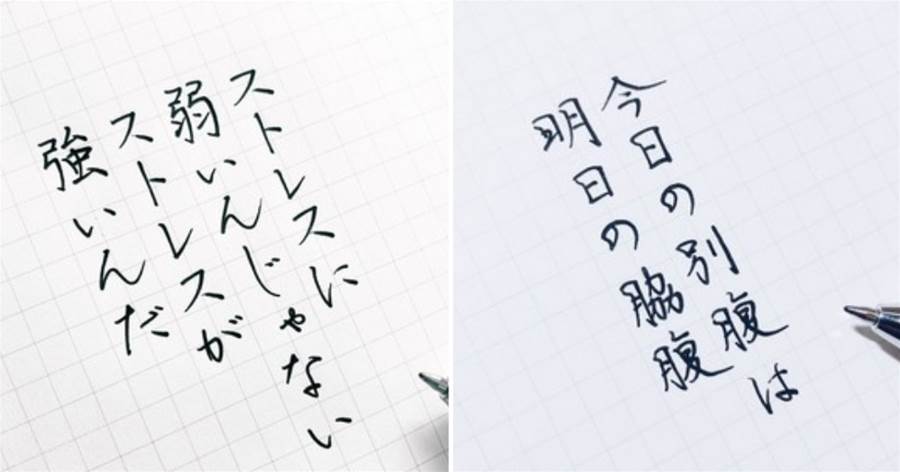 ストレスに
弱いんじゃない
ストレスが
強いんだ
今日の別腹は
明日の脇腹